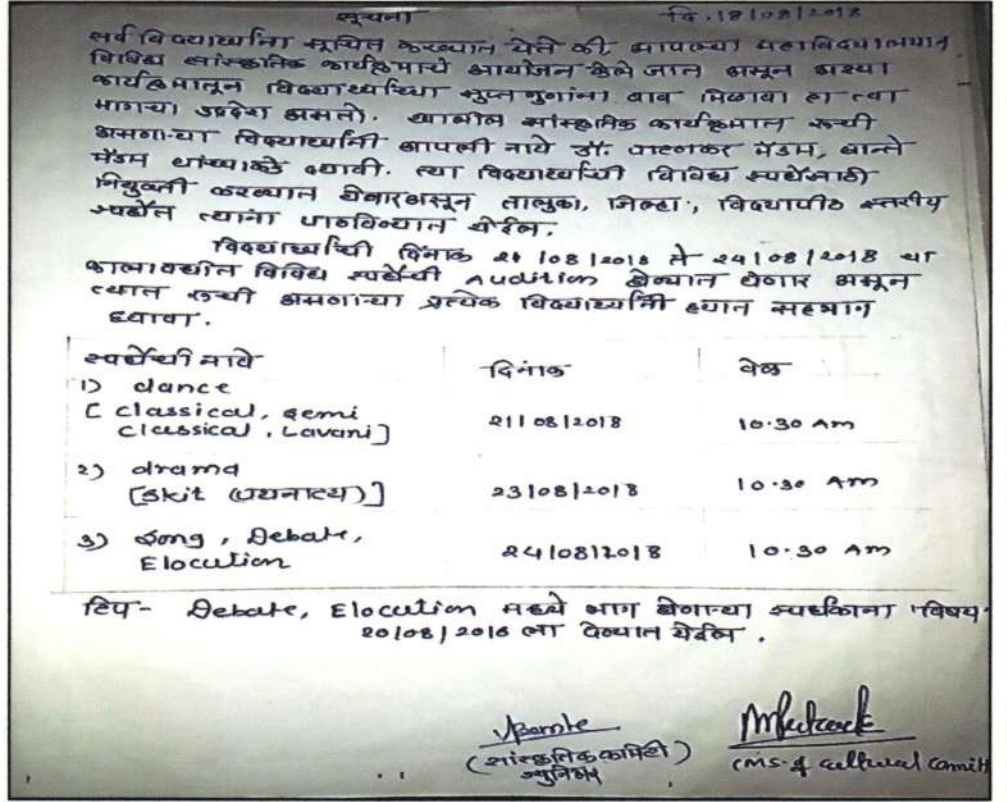 सूचना दि. 18/08/2018
सर्व विद्यार्थ्यांना सूचित करण्यात येते की, आपल्या महाविद्यालयात
विविध सांस्कृतिक कार्यक्रमाचे आयोजन केले जात असून अश्या
कार्यक्रमातून विद्यार्थ्यांच्या सुप्त गुणांना वाव मिळावा हा त्या
मागचा उद्देश असतो. खालील सांस्कृतिक कार्यक्रमात रुची
असणाऱ्या विद्यार्थ्यांनी आपली नावे डॉ. पाटणकर मॅडम, बान्ते
मॅडम यांच्याकडे द्यावी. त्या विद्यार्थ्यांची विविध स्पर्धेसाठी
नियुक्ती करण्यात येणार असून तालुका, जिल्हा, विद्यापीठ स्तरीय
स्पर्धेत त्यांना पाठविण्यात येईल.
विद्यार्थ्यांची दिनांक 21/08/2018 ते 24/08/2018 या
कालावधीत विविध स्पर्धेची Audition घेण्यात येणार असून
त्यात रुची असणाऱ्या प्रत्येक विद्यार्थ्यांनी ह्यात सहभाग
घ्यावा.
स्पर्धेची नावे दिनांक वेळ
1) dance
[classical, semi
classical, Lavani] 21/08/2018 10.30 Am
2) drama
[skit (पथनाट्य)] 23/08/2018 10.30 Am
3) song, Debate,
Elocution 24/08/2018 10.30 Am
टिप - Debate, Elocution मध्ये भाग घेणाऱ्या स्पर्धकांना विषय
20/08/2018 ला देण्यात येईल.
(सांस्कृतिक कमिटी)
ज्युनिअर
cultural